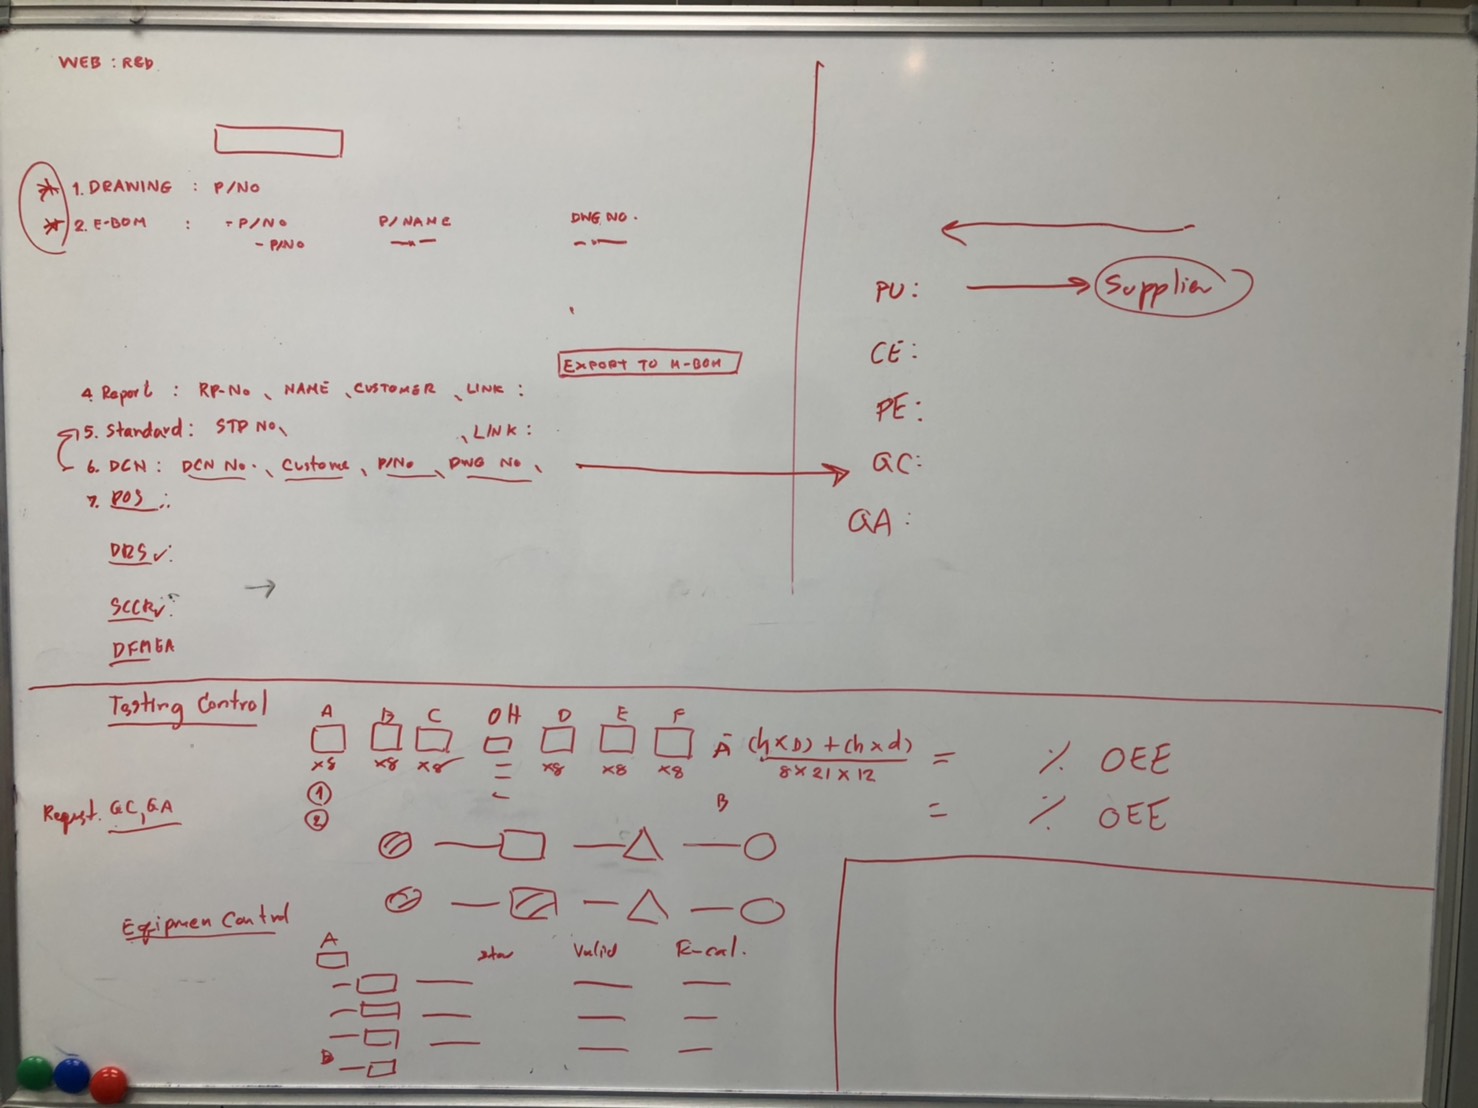 WEB : R&D
1. DRAWING : P/NO
2. E-BOM : - P/NO P/NAME DWG NO.
- P/NO
EXPORT TO M-BOM
4. Report : RP-No、NAME、CUSTOMER、LINK :
5. Standard : STP No、 、LINK :
6. DCN : DCN No.、Custome、P/No、DWG No、
7. POS :
DRS ✓:
SCCR ✓:
DFMEA
PU : Supplier
CE :
PE :
QC :
QA :
Testing Control
A B C OH D E F
x8 x8 x8 x8 x8 x8
A (h x D) + (h x d) = % OEE
8 x 21 x 12
1
2
B = % OEE
Requst. QC, QA
Eqipmen Control
A
Valid R-cal.
B